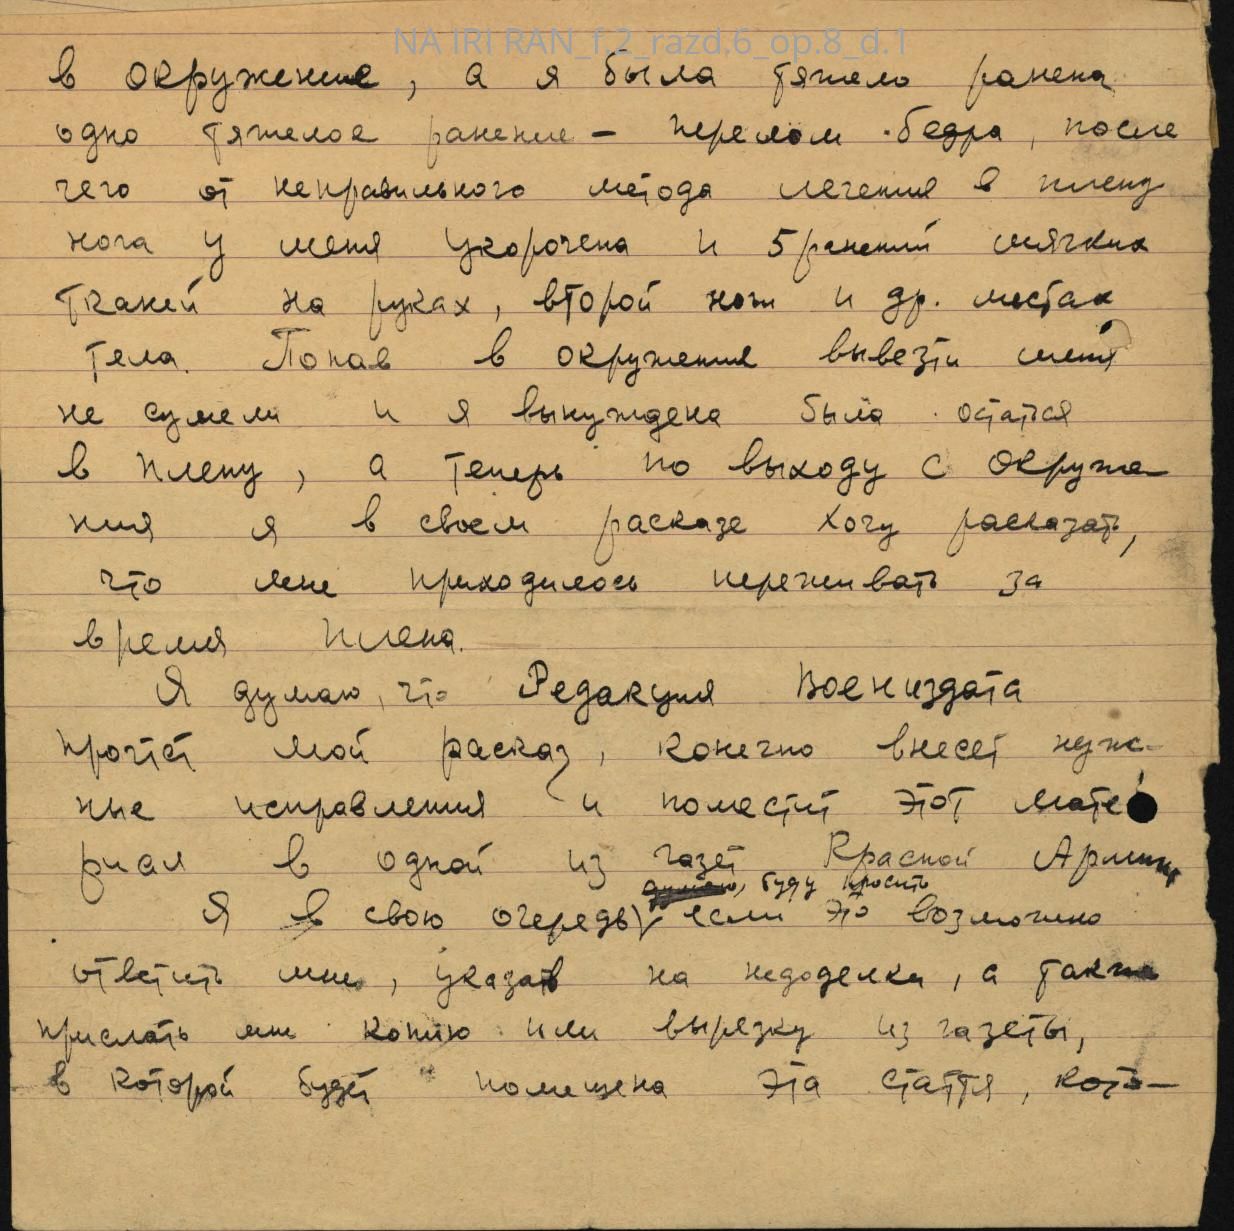 NA IRI RAN_f.2_razd.6_op.8_d.1
в окружение, а я была тяжело ранена
одно тяжелое ранение – перелом бедра, после
чего от неправильного метода лечения в плену
нога у меня укорочена и 5 ранений мягких
тканей на руках, второй ноги и др. местах
тела. Попав в окружения вывезти меня
не сумели и я вынуждена была остатся
в плену, а теперь по выходу с окруже-
ния я в своем расказе хочу расказать,
что мне приходилось переживать за
время плена.
Я думаю, что Редакция Воениздата
прочтет мой расказ, конечно внесет нуж-
ные исправления и поместит этот мате-
риал в одной из газет Красной Армии
думаю, буду просить
Я в свою очередь если это возможно
ответить мне, указать на недоделки, а также
прислать мне копию или вырезку из газеты,
в которой будет помещена эта стаття, кото-